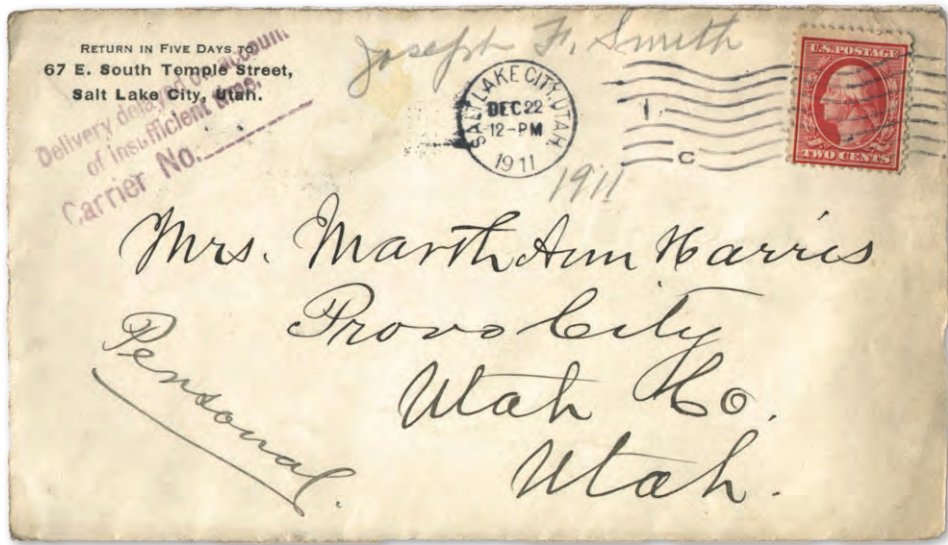 RETURN IN FIVE DAYS TO
67 E. South Temple Street,
Salt Lake City, Utah.
Delivery delayed on account
of insufficient
Carrier No.
Joseph F. Smith
SALT LAKE CITY, UTAH.
DEC 22
12-PM
1911
1
C
U.S. POSTAGE
TWO CENTS
1911
Mrs. Marth Ann Harris
Provo City
Utah Co.
Utah.
Personal.